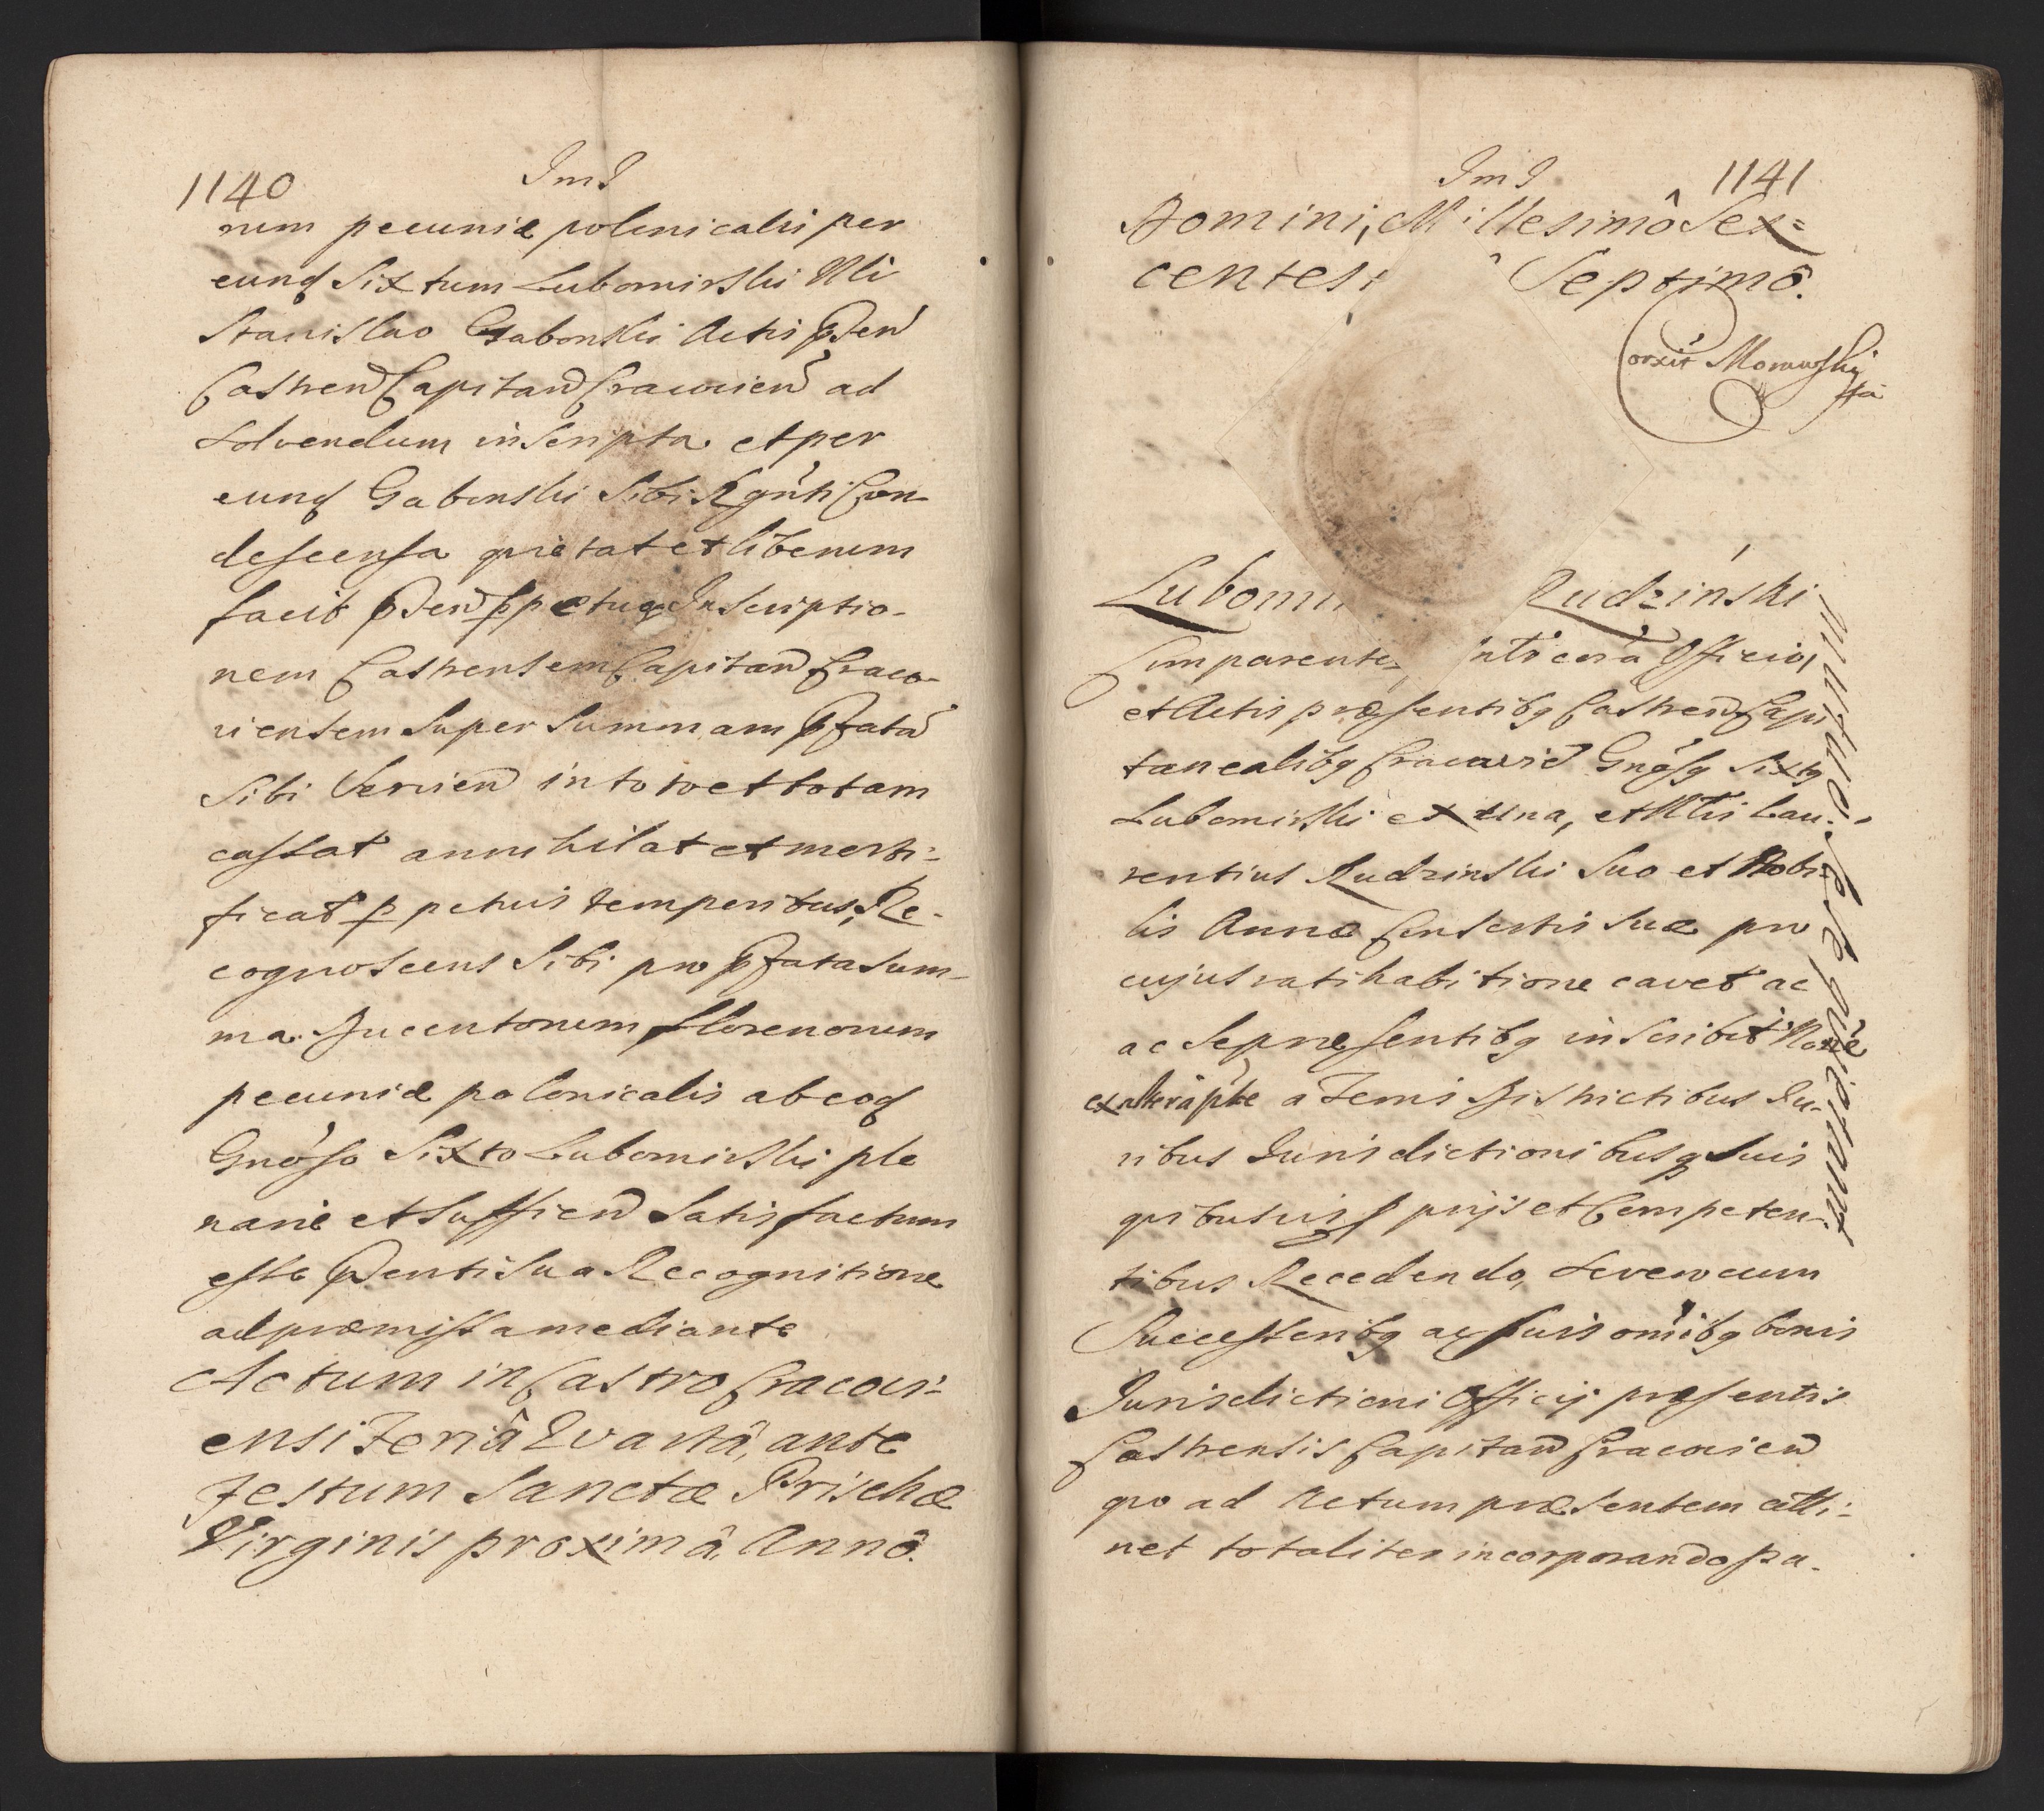 1140
ImI
rum pecuniæ polonicalis per
eund Sixtum Lubomirski Nli
Stanislao Gabonski Actis pñsen
Castren Capitan Cracovien ad
solvendum inscripta et per
eund Gabonski Sibi Rgñti Con-
descensa quietat et liberum
facit pñsen ppetuq Inscriptio-
nem Castrensem Capitan Craco-
viensem super summam pfatā
Sibi servien in toto et totam
cassat annihilat et morti-
ficat ppetuis temporibus, Re-
cognoscens Sibi pro pfata sum-
ma Ducentorum florenorum
pecuniæ polonicalis ab eod
Gnoso Sixto Lubomirski ple
narie et sufficien satisfactum
esse pñsenti sua Recognitione
ad præmissa mediante
Actum in Castro Cracovi-
ensi Feriâ Quartâ, ante
Festum Sanctæ Prischæ
Virginis proximâ, Annô.
ImI
1141
Domini, Millesimô Sex=
centesi Septimô.
orxit Morawski
Lubomi Rudzinski
Comparentes Officio,
et Actis præsentibq Castren Capi
tanealibq Cracovien Gnosq Sixtq
Lubomirski ex una, et Nlis Lau-
rentius Rudzinski suo et Nobi-
lis Annæ Consortis suæ pro
cujus ratihabitione cavet ac
ac se præsentibq inscribit Noīe
ex altera pte a Terris Districtibus Ju-
ribus Jurisdictionibusq suis
quibusvis ppriis et Competen-
tibus Recedendo, Severo cum
Successoribq ac suis omībq bonis
Jurisdictioni Officij præsentis
Castrensis Capitan Cracovien
quo ad Actum præsentem atti-
net totaliter incorporando pa-